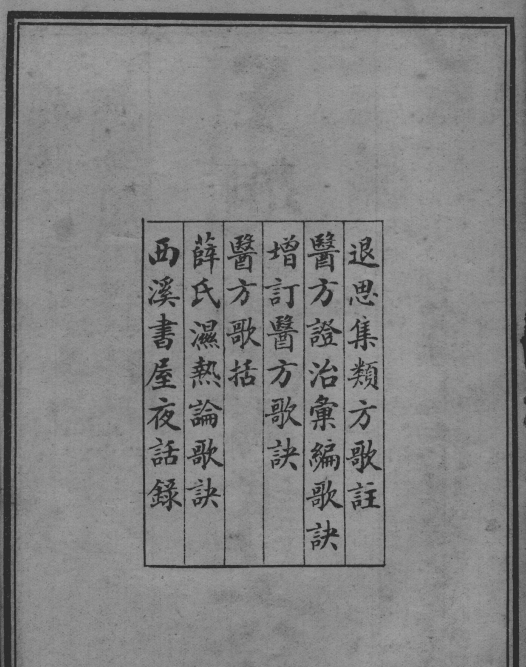 退思集類方歌註
醫方證治彙編歌訣
增訂醫方歌訣
醫方歌括
薛氏濕熱論歌訣
西溪書屋夜話錄